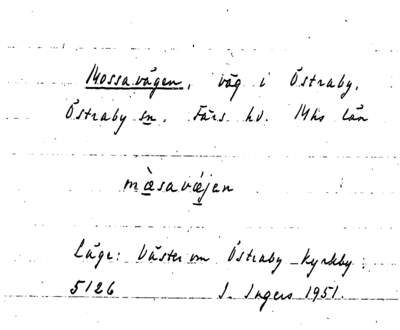 Mossavägen, väg i Östraby,
Östraby sn. Färs hd. Mhs län
mæ̀savæ̀jen
Läge: Väster om Östraby kyrkby.
5126 I. Ingers 1951.